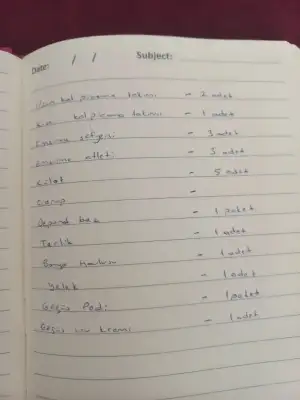 Date: / / Subject:
Uzun kol pijama takımı - 2 adet
kol pijama takımı - 1 adet
Emzirme - 3 adet
emzirme atleti - 5 adet
Külot - 5 adet
Çorap -
Depend bez - 1 paket
Terlik - 1 adet
Banyo Havlusu - 1 adet
Yelek - 1 adet
Göğüs Pedi - 1 paket
Göğüs ucu kremi - 1 adet